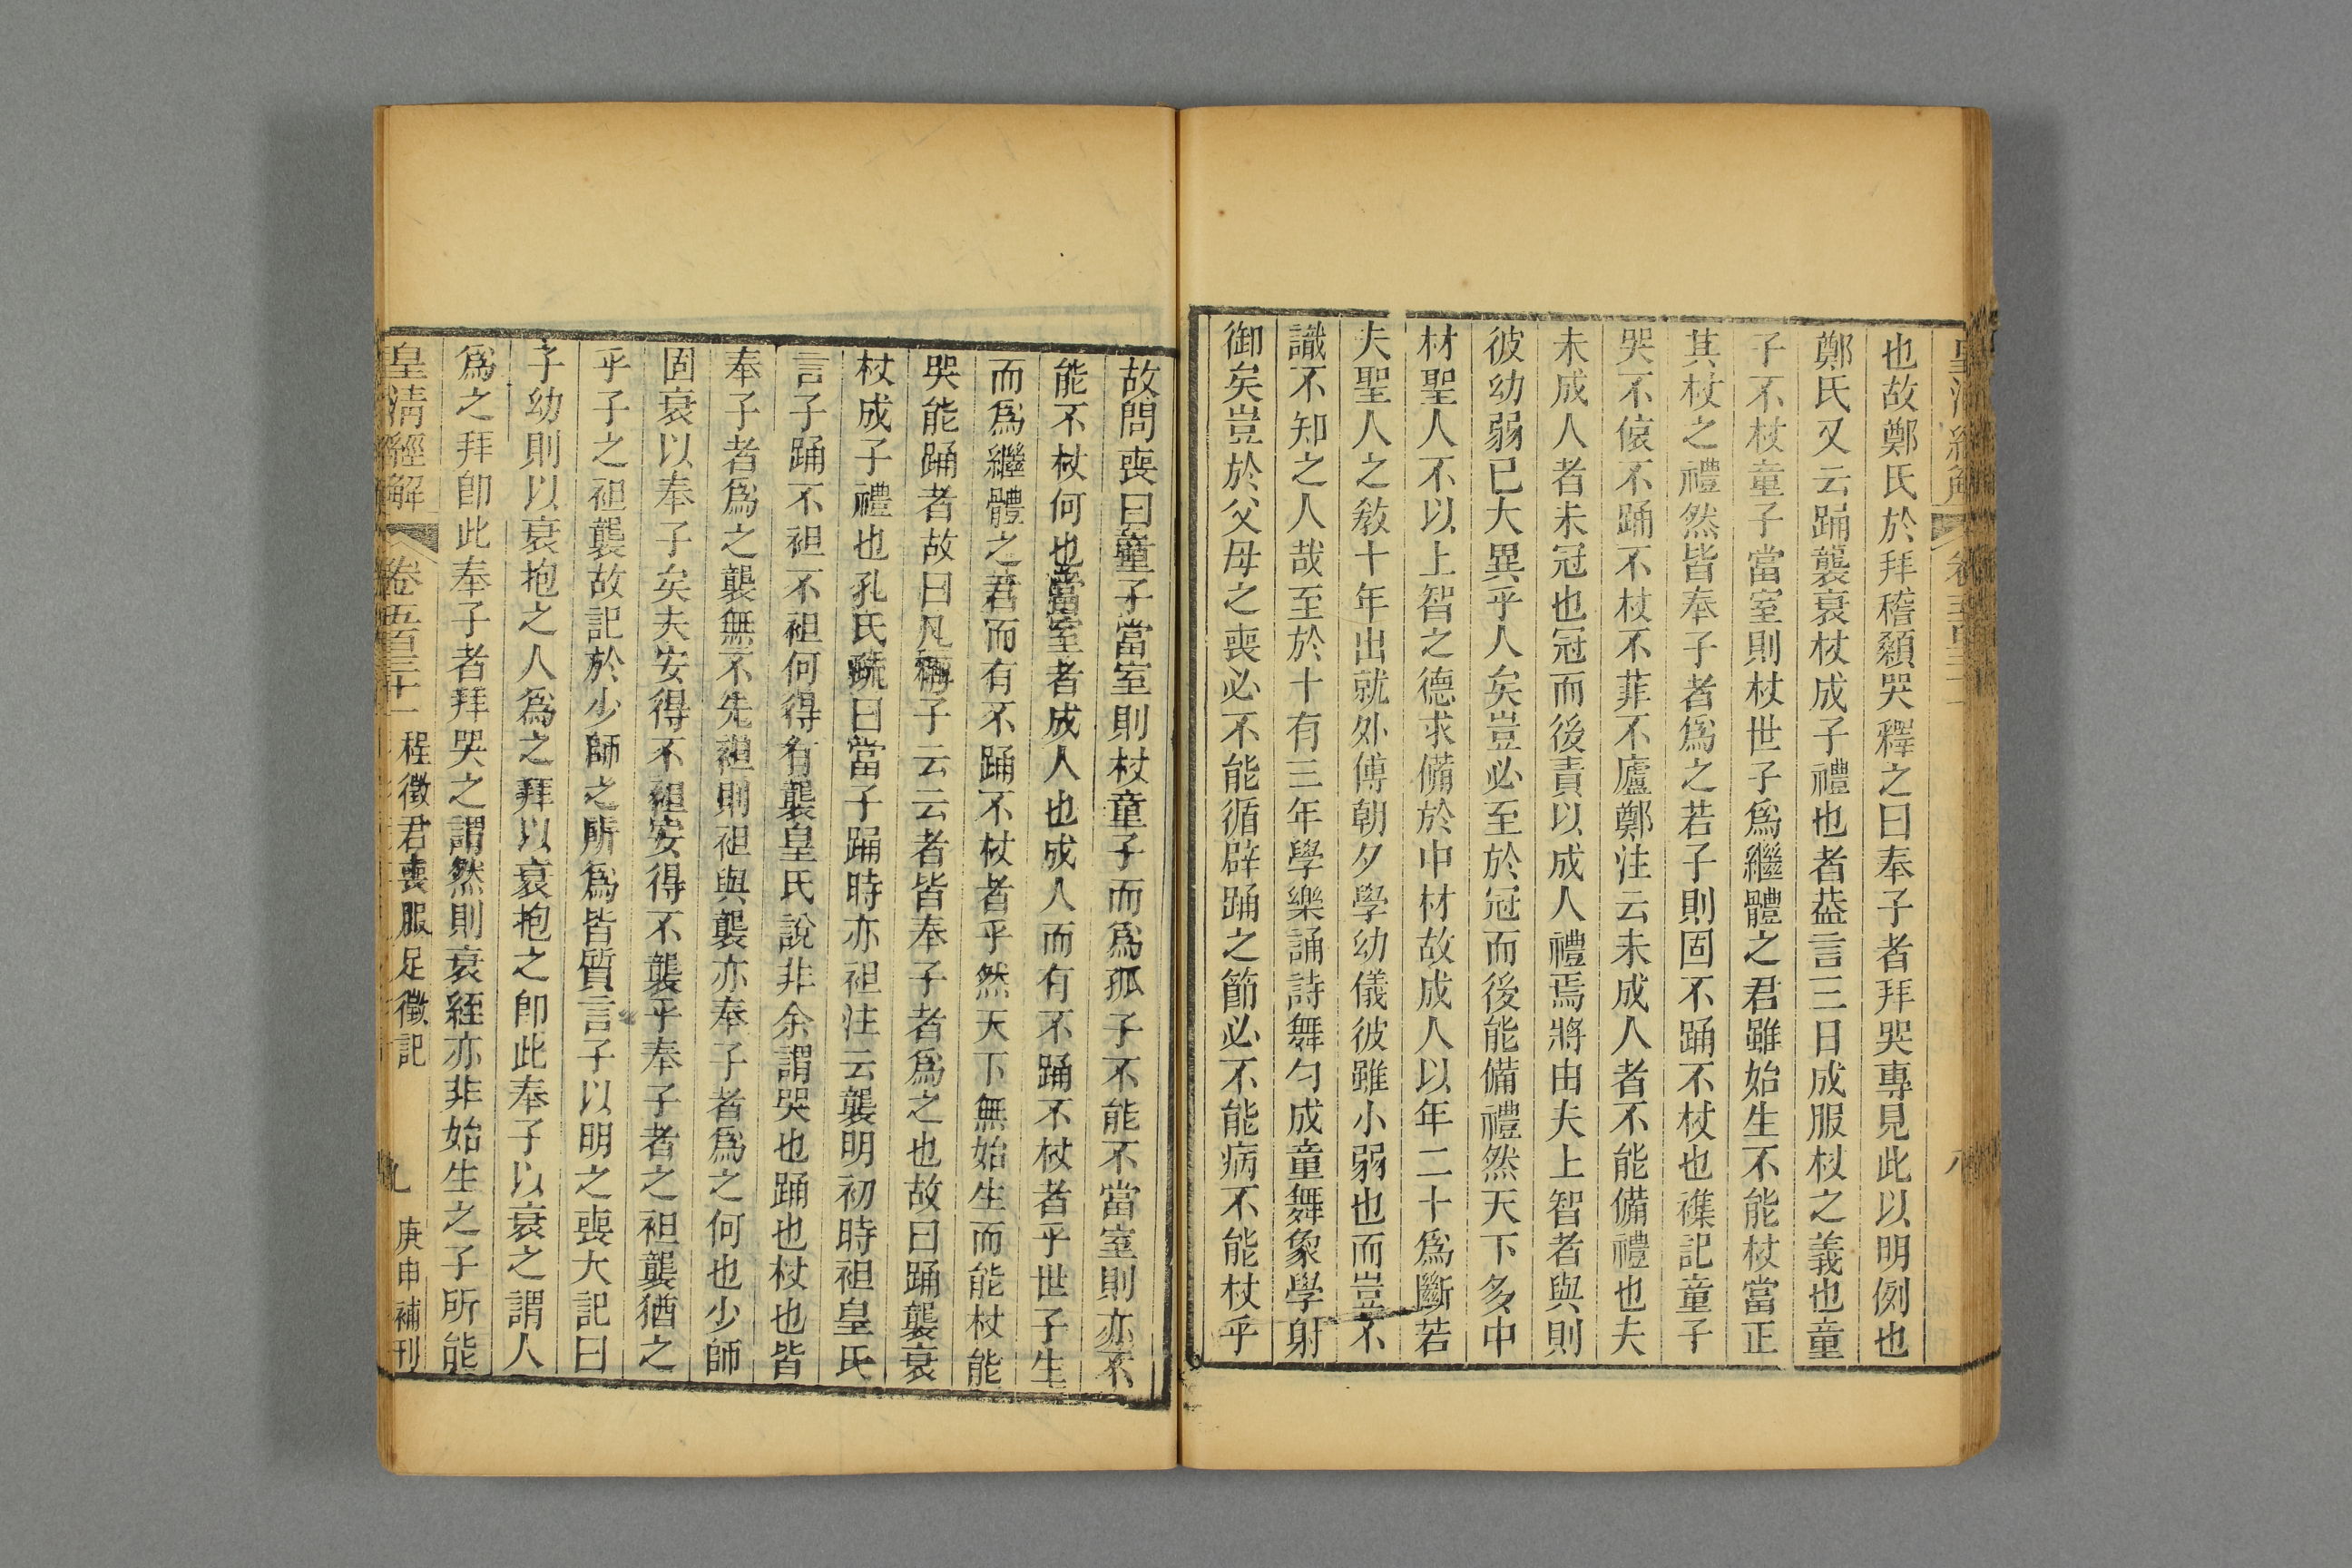 也故鄭氏於拜稽顙哭釋之曰奉子者拜哭專見此以明例也
鄭氏又云踊襲衰杖成子禮也者葢言三日成服杖之義也童
子不杖童子當室則杖世子爲繼體之君雖始生不能杖當正
其杖之禮然皆奉子者爲之若子則固不踊不杖也襍記童子
哭不偯不踊不杖不菲不廬鄭注云未成人者不能備禮也夫
未成人者未冠也冠而後責以成人禮焉將由夫上智者與則
彼幼弱已大異乎人矣豈必至於冠而後能備禮然天下多中
材聖人不以上智之德求備於中材故成人以年二十爲斷若
夫聖人之敎十年出就外傅朝夕學幼儀彼雖小弱也而豈不
識不知之人哉至於十有三年學樂誦詩舞勺成童舞象學射
御矣豈於父母之喪必不能循辟踊之節必不能病不能杖乎
故問喪曰童子當室則杖童子而爲孤子不能不當室則亦不
能不杖何也當室者成人也成人而有不踊不杖者乎世子生
而爲繼體之君而有不踊不杖者乎然天下無始生而能杖能
哭能踊者故曰凡稱子云云者皆奉子者爲之也故曰踊襲衰
杖成子禮也孔氏疏曰當子踊時亦袒注云襲明初時袒皇氏
言子踊不袒不袒何得有襲皇氏說非余謂哭也踊也杖也皆
奉子者爲之襲無不先袒則袒與襲亦奉子者爲之何也少師
固衰以奉子矣夫安得不袒安得不襲乎奉子者之袒襲猶之
乎子之袒襲故記於少師之所爲皆質言子以明之喪大記曰
子幼則以衰抱之人爲之拜以衰抱之卽此奉子以衰之謂人
爲之拜卽此奉子者拜哭之謂然則衰絰亦非始生之子所能
皇清經解 卷五百三十一 程徵君喪服足徵記 九 庚申補刊